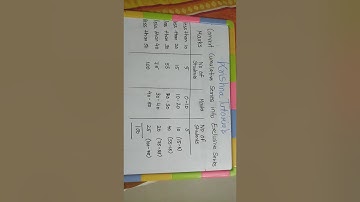 Krishna Tutorials
Convert Cumulative Series into Exclusive Series
Marks No of Students Marks No of Students
less than 10 5 0-10 5
less than 20 15 10-20 10 (15-5)
less than 30 55 20-30 40 (55-15)
less than 40 75 30-40 20 (75-55)
less than 50 100 40-50 25 (100-75)
100